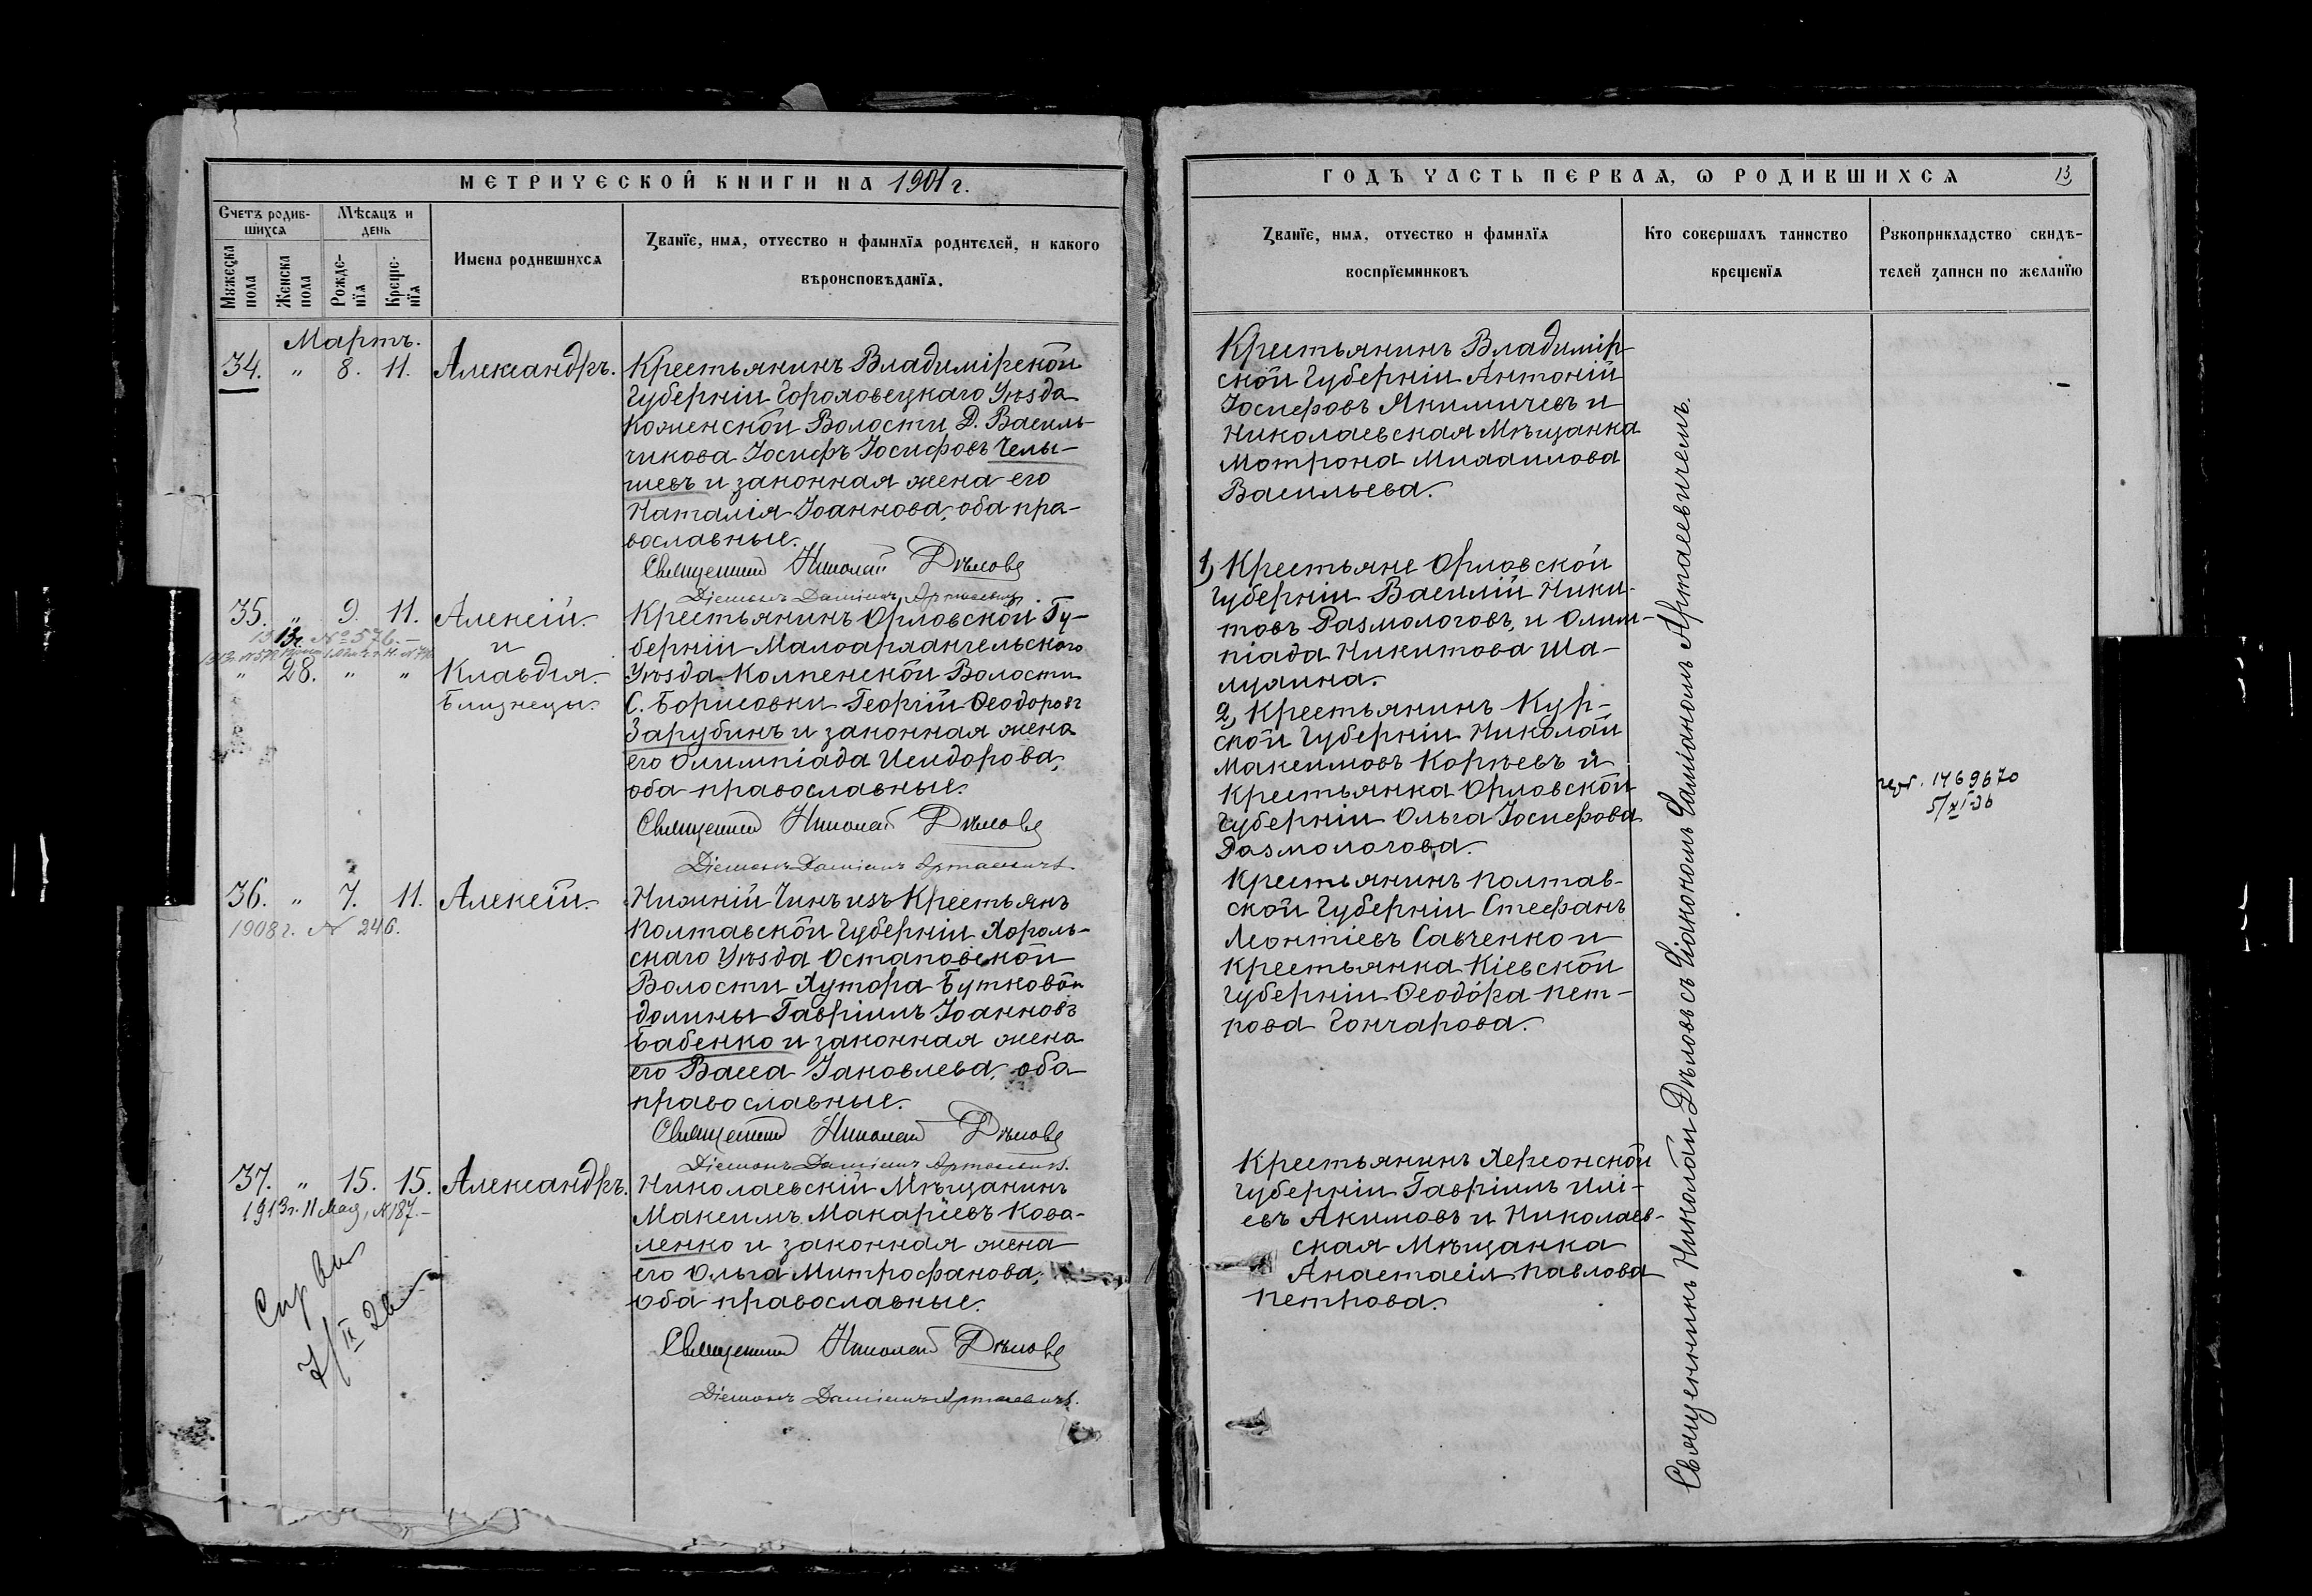 МЕТРИЧЕСКОЙ КНИГИ НА 1901 г.
Счетъ родив-
шихся
Мѣсяцъ и
день
Мужеска
пола
Женска
пола
Рожде-
нїя
Креще-
нїя
Имена родившихся
Званїе, имя, отчество и фамилїя родителей, и какого
вѣроисповѣданїя.
Мартъ.
34. " 8. 11. Александръ.
Крестьянинъ Владимірской
Губерніи Гороховецкаго Уѣзда
Волости Д. Василь-
чикова Іосифъ Іосифовъ Челы-
шевъ и законная жена его
Наталія Іоаннова, оба пра-
вославные.
Священникъ Николай Дѣловъ
Діаконъ Даміанъ Артасевичъ.
35. " 9. 11. Алексій
и
" 28. " " Клавдія.
Близнецы.
Крестьянинъ Орловской Гу-
берніи Малоархангельского
Уѣзда Колпенской Волости
С. Борисовки Георгій Ѳеодоровъ
Зарубинъ и законная жена
его Олимпіада Исидорова,
оба православные.
Священникъ Николай Дѣловъ
Діаконъ Даміанъ Артасевичъ.
36. " 7. 11. Алексій.
1908 г. № 246.
Нижній Чинъ изъ Крестьянъ
Полтавской Губерніи Хороль-
скаго Уѣзда Остаповской
Волости Хутора Бутковой
долины Гавріилъ Іоанновъ
Бабенко и законная жена
его Васса Іаковлева, оба
православные.
Священникъ Николай Дѣловъ
Діаконъ Даміанъ Артасевичъ.
37. " 15. 15. Александръ.
1913 г. 11 Мая, № 187.
Николаевскій Мѣщанинъ
Максимъ Макаріевъ Кова-
ленко и законная жена
его Ольга Митрофанова,
оба православные.
Священникъ Николай Дѣловъ
Діаконъ Даміанъ Артасевичъ.
ГОДЪ ЧАСТЬ ПЕРВАЯ, Ѡ РОДИВШИХСЯ
13
Званїе, имя, отчество и фамилїя
воспрїемниковъ
Кто совершалъ таинство
крещенїя
Рукоприкладство свидѣ-
телей записи по желанїю
Крестьянинъ Владимір-
ской Губерніи Антоній
Іосифовъ Якимичевъ и
Николаевская Мѣщанка
Мотрона Михаилова
Васильева.
1, Крестьяне Орловской
Губерніи Василій Ники-
товъ Размологовъ, и Олим-
піада Никитова Ша-
лухина.
2, Крестьянинъ Кур-
ской Губерніи Николай
Максимовъ Корнѣевъ и
Крестьянка Орловской
Губерніи Ольга Іосифова
Размологова.
1469670
5/XI-36
Крестьянинъ Полтав-
ской Губерніи Стефанъ
Леонтіевъ Савченко и
Крестьянка Кіевской
Губерніи Ѳеодора Пет-
рова Гончарова.
Крестьянинъ Херсонской
Губерніи Гавріилъ Илі-
евъ Акимовъ и Николаев-
ская Мѣщанка
Анастасія Павлова
Петрова.
Священникъ Николай Дѣловъ съ Діакономъ Даміаномъ Артасевичемъ.